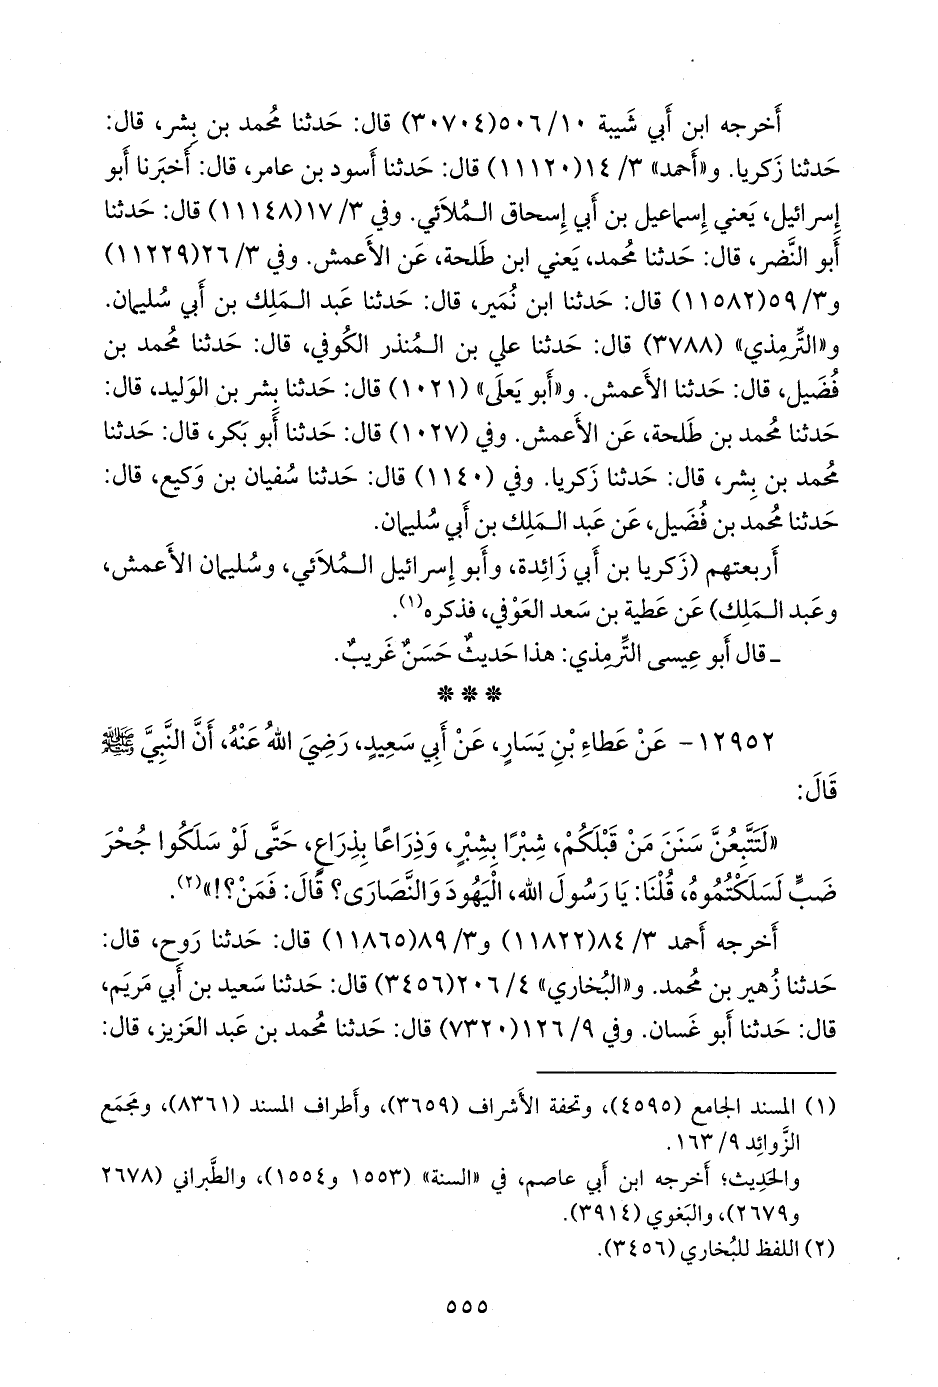 أَخرجه ابن أَبي شَيبة ١٠/ ٥٠٦(٣٠٧٠٤) قال: حَدثنا مُحمد بن بِشر، قال:
حَدثنا زَكريا. و«أَحمد» ٣/ ١٤(١١١٢٠) قال: حَدثنا أَسود بن عامر، قال: أَخبَرنا أَبو
إِسرائيل، يَعني إِسماعيل بن أَبي إِسحاق الـمُلاَئي. وفي ٣/ ١٧(١١١٤٨) قال: حَدثنا
أَبو النَّضر، قال: حَدثنا مُحمد، يَعني ابن طَلحة، عَن الأَعمش. وفي ٣/ ٢٦(١١٢٢٩)
و٣/ ٥٩(١١٥٨٢) قال: حَدثنا ابن نُمَير، قال: حَدثنا عَبد الـمَلِك بن أَبي سُليمان.
و«التِّرمِذي» (٣٧٨٨) قال: حَدثنا علي بن الـمُنذر الكُوفي، قال: حَدثنا مُحمد بن
فُضَيل، قال: حَدثنا الأَعمش. و«أَبو يَعلَى» (١٠٢١) قال: حَدثنا بِشر بن الوَليد، قال:
حَدثنا مُحمد بن طَلحة، عَن الأَعمش. وفي (١٠٢٧) قال: حَدثنا أَبو بَكر، قال: حَدثنا
مُحمد بن بِشر، قال: حَدثنا زَكريا. وفي (١١٤٠) قال: حَدثنا سُفيان بن وَكيع، قال:
حَدثنا مُحمد بن فُضَيل، عَن عَبد الـمَلِك بن أَبي سُليمان.
أَربعتهم (زَكريا بن أَبي زَائِدة، وأَبو إِسرائيل الـمُلاَئي، وسُليمان الأَعمش،
وعَبد الـمَلِك) عَن عَطية بن سَعد العَوْفي، فذكره(١).
ـ قال أَبو عِيسى التِّرمِذي: هذا حَديثٌ حَسَنٌ غَريبٌ.
***
١٢٩٥٢- عَنْ عَطَاءِ بْنِ يَسَارٍ، عَنْ أَبِي سَعِيدٍ، رَضِيَ اللهُ عَنْهُ، أَنَّ النَّبِيَّ ﷺ
قَالَ:
«لَتَتَّبِعُنَّ سَنَنَ مَنْ قَبْلَكُمْ، شِبْرًا بِشِبْرٍ، وَذِرَاعًا بِذِرَاعٍ، حَتَّى لَوْ سَلَكُوا جُحْرَ
ضَبٍّ لَسَلَكْتُمُوهُ، قُلْنَا: يَا رَسُولَ اللهِ، الْيَهُودَ وَالنَّصَارَى؟ قَالَ: فَمَنْ؟!»(٢).
أَخرجه أَحمد ٣/ ٨٤(١١٨٢٢) و٣/ ٨٩(١١٨٦٥) قال: حَدثنا رَوح، قال:
حَدثنا زُهير بن مُحمد. و«البُخاري» ٤/ ٢٠٦(٣٤٥٦) قال: حَدثنا سَعيد بن أَبي مَريَم،
قال: حَدثنا أَبو غَسان. وفي ٩/ ١٢٦(٧٣٢٠) قال: حَدثنا مُحمد بن عَبد العَزيز، قال:
(١) المسند الجامع (٤٥٩٥)، وتحفة الأَشراف (٣٦٥٩)، وأَطراف المسند (٨٣٦١)، ومَجمَع
الزَّوائِد ٩/ ١٦٣.
والحَدِيث؛ أَخرجه ابن أَبي عاصم، في «السنة» (١٥٥٣ و١٥٥٤)، والطَّبراني (٢٦٧٨
و٢٦٧٩)، والبَغوي (٣٩١٤).
(٢) اللفظ للبُخاري (٣٤٥٦).
٥٥٥